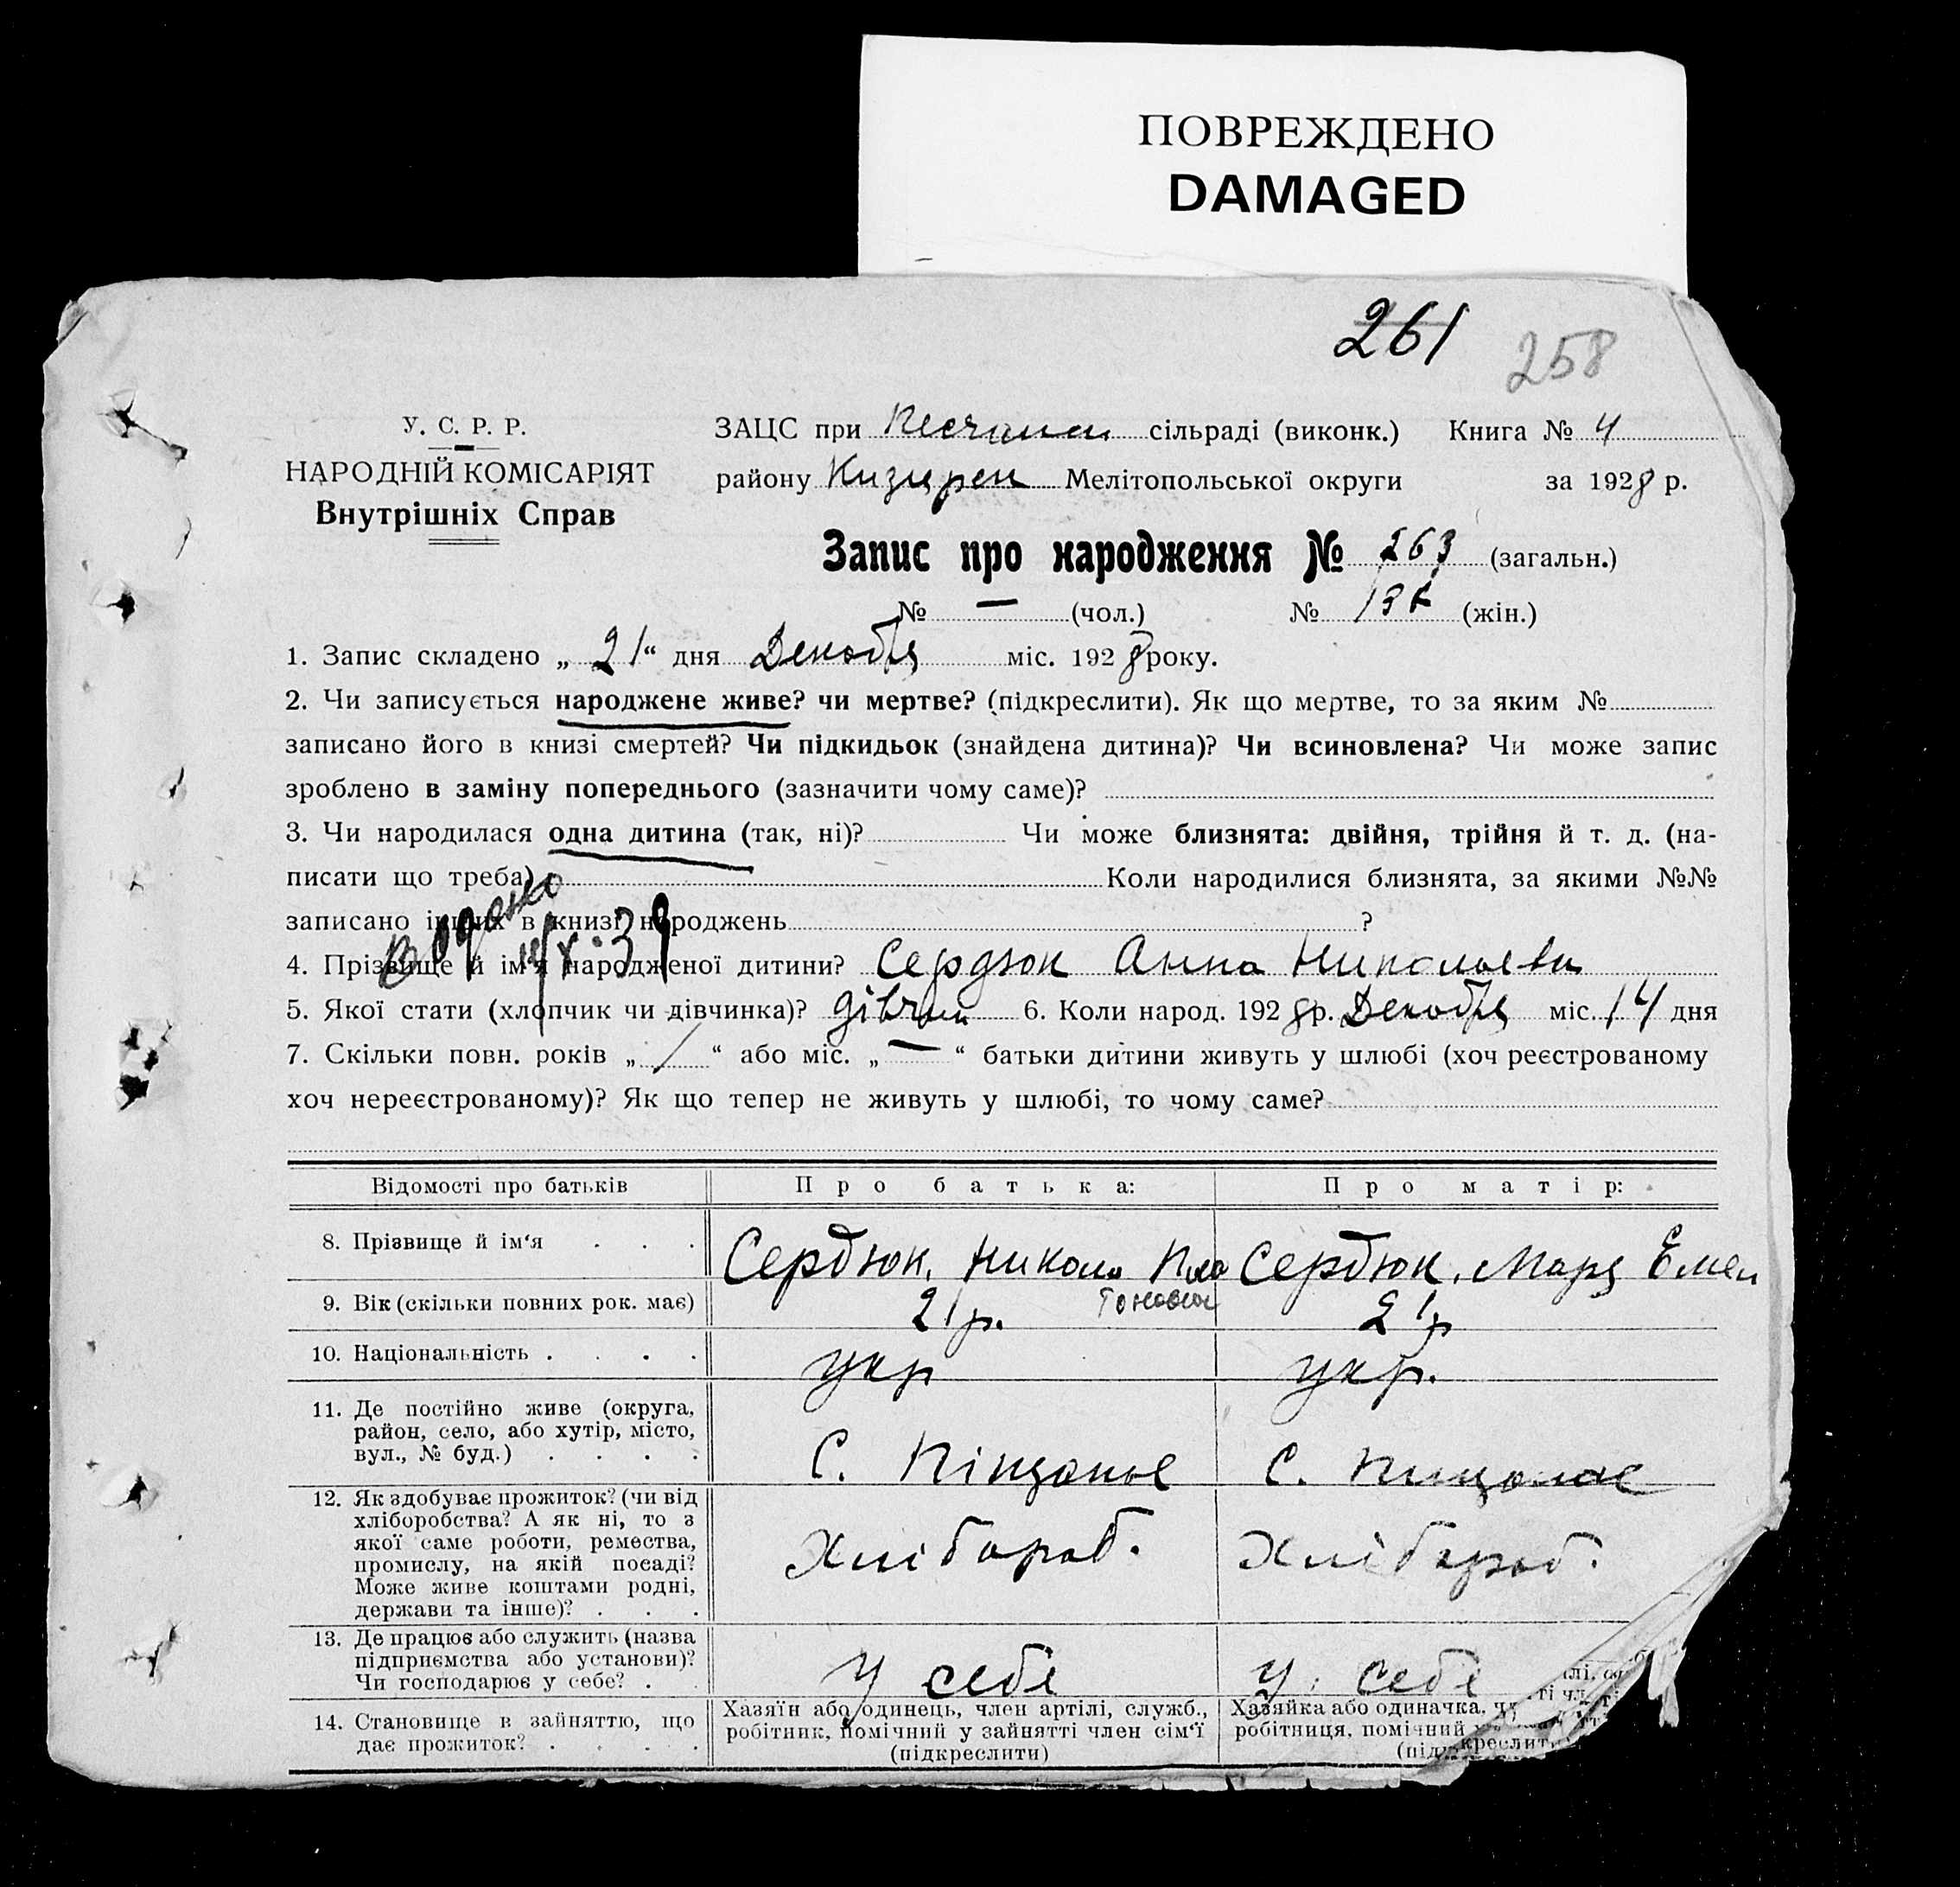 ПОВРЕЖДЕНО
DAMAGED
261 258
У. С. Р. Р.
НАРОДНІЙ КОМІСАРІЯТ
Внутрішніх Справ
ЗАЦС при сільраді (виконк.) Книга № 4
району Мелітопольської округи за 1928 р.
Запис про народження № 263 (загальн.)
№ — (чол.) № (жін.)
1. Запис складено „ 21 “ дня Декабря міс. 1928 року.
2. Чи записується народжене живе? чи мертве? (підкреслити). Як що мертве, то за яким №
записано його в книзі смертей? Чи підкидьок (знайдена дитина)? Чи всиновлена? Чи може запис
зроблено в заміну попереднього (зазначити чому саме)?
3. Чи народилася одна дитина (так, ні)? Чи може близнята: двійня, трійня й т. д. (на-
писати що треба) Коли народилися близнята, за якими №№
записано інших в книзі народжень ?
4. Прізвище й ім'я народженої дитини? Сердюк Анна Николаевн
5. Якої стати (хлопчик чи дівчинка)? дівчин 6. Коли народ. 1928 р. Декабря міс. 14 дня
7. Скільки повн. років „ 1 “ або міс. „ — “ батьки дитини живуть у шлюбі (хоч реєстрованому
хоч нереєстрованому)? Як що тепер не живуть у шлюбі, то чому саме?
Відомості про батьків Про батька: Про матір:
8. Прізвище й ім'я . . . Сердюк. Никола Пла Сердюк. Мария Емел
9. Вік (скільки повних рок. має) 21 р. 21 р
10. Національність . . . . укр укр.
11. Де постійно живе (округа,
район, село, або хутір, місто,
вул., № буд.) . . . . С. Піщаное С. Пищаное
12. Як здобуває прожиток? (чи від
хліборобства? А як ні, то з
якої саме роботи, ремества,
промислу, на якій посаді?
Може живе коштами родні,
держави та інше)? . . . Хлібороб. Хлібороб.
13. Де працює або служить (назва
підприємства або установи)?
Чи господарює у себе? . У себе У себе
14. Становище в зайняттю, що
дає прожиток? . . . .
Хазяїн або одинець, член артілі, служб.,
робітник, помічний у зайнятті член сім'ї
(підкреслити)
Хазяйка або одиначка,
робітниця, помічний